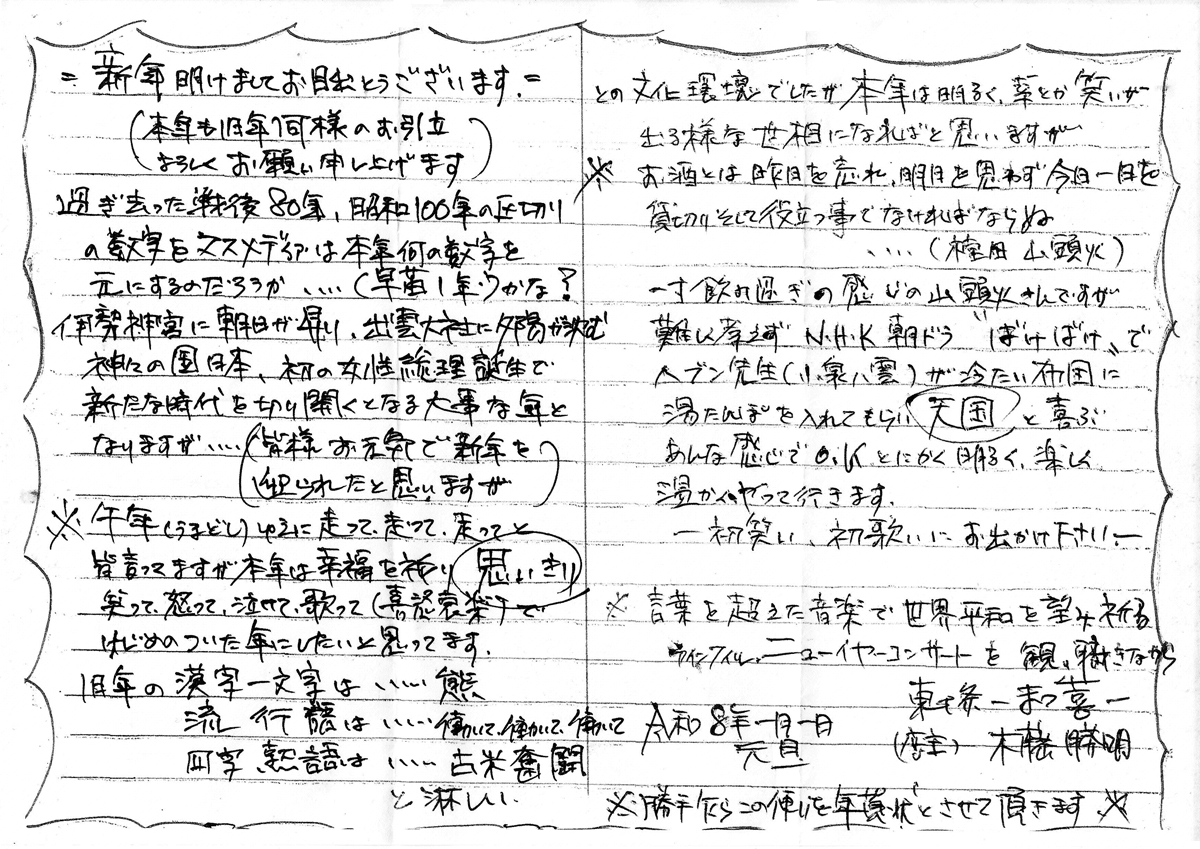 =新年明けましてお目出とうございます.=
(本年も旧年同様のお引立
よろしくお願い申し上げます)
過ぎ去った戦後80年、昭和100年の区切り
の数字をマスメディアは本年何の数字を
元にするのだろうか ....(早苗1年!)かな?
伊勢神宮に朝日が昇り、出雲大社に夕陽が沈む
神々の国日本、初の女性総理誕生で
新たな時代を切り開くとなる大事な年と
なりますが....(皆様お元気で新年を
迎えられたと思いますが)
※午年(うまどし)ゆえに走って、走って、走ってと
皆言ってますが本年は幸福を祈り 思いきり
笑って、怒って、泣せて、歌って(喜怒哀楽)で
けじめのついた年にしたいと思ってます.
旧年の漢字一文字は .... 熊
流行語は .... 働いて、働いて、働いて
四字熟語は .... 古米奮闘
と淋しい.
との文化環境でしたが本年は明るく、薬とか笑いが
出る様な世相になればと思いますが
※お酒とは昨日を忘れ、明日を思わず今日一日を
貸切りそして役立つ事でなければならぬ
....(種田 山頭火)
一寸飲み過ぎの感じの山頭火さんですが
難しく考えず N.H.K 朝ドラ "ばけばけ" で
ヘブン先生(小泉八雲)が冷たい布団に
湯たんぽを入れてもらい 天国 と喜ぶ
あんな感じで O.K とにかく明るく、楽しく
温かくやって行きます.
ー初笑い、初歌いにお出かけ下さいー
※言葉を超えた音楽で世界平和を望み祈る
ウインフィル.ニューイヤーコンサートを観、聴きながら
東七条ーまつ喜ー
令和8年一月一日
元旦
(店主) 木藤勝明
※勝手ながらこの便りを年賀状とさせて頂きます.※